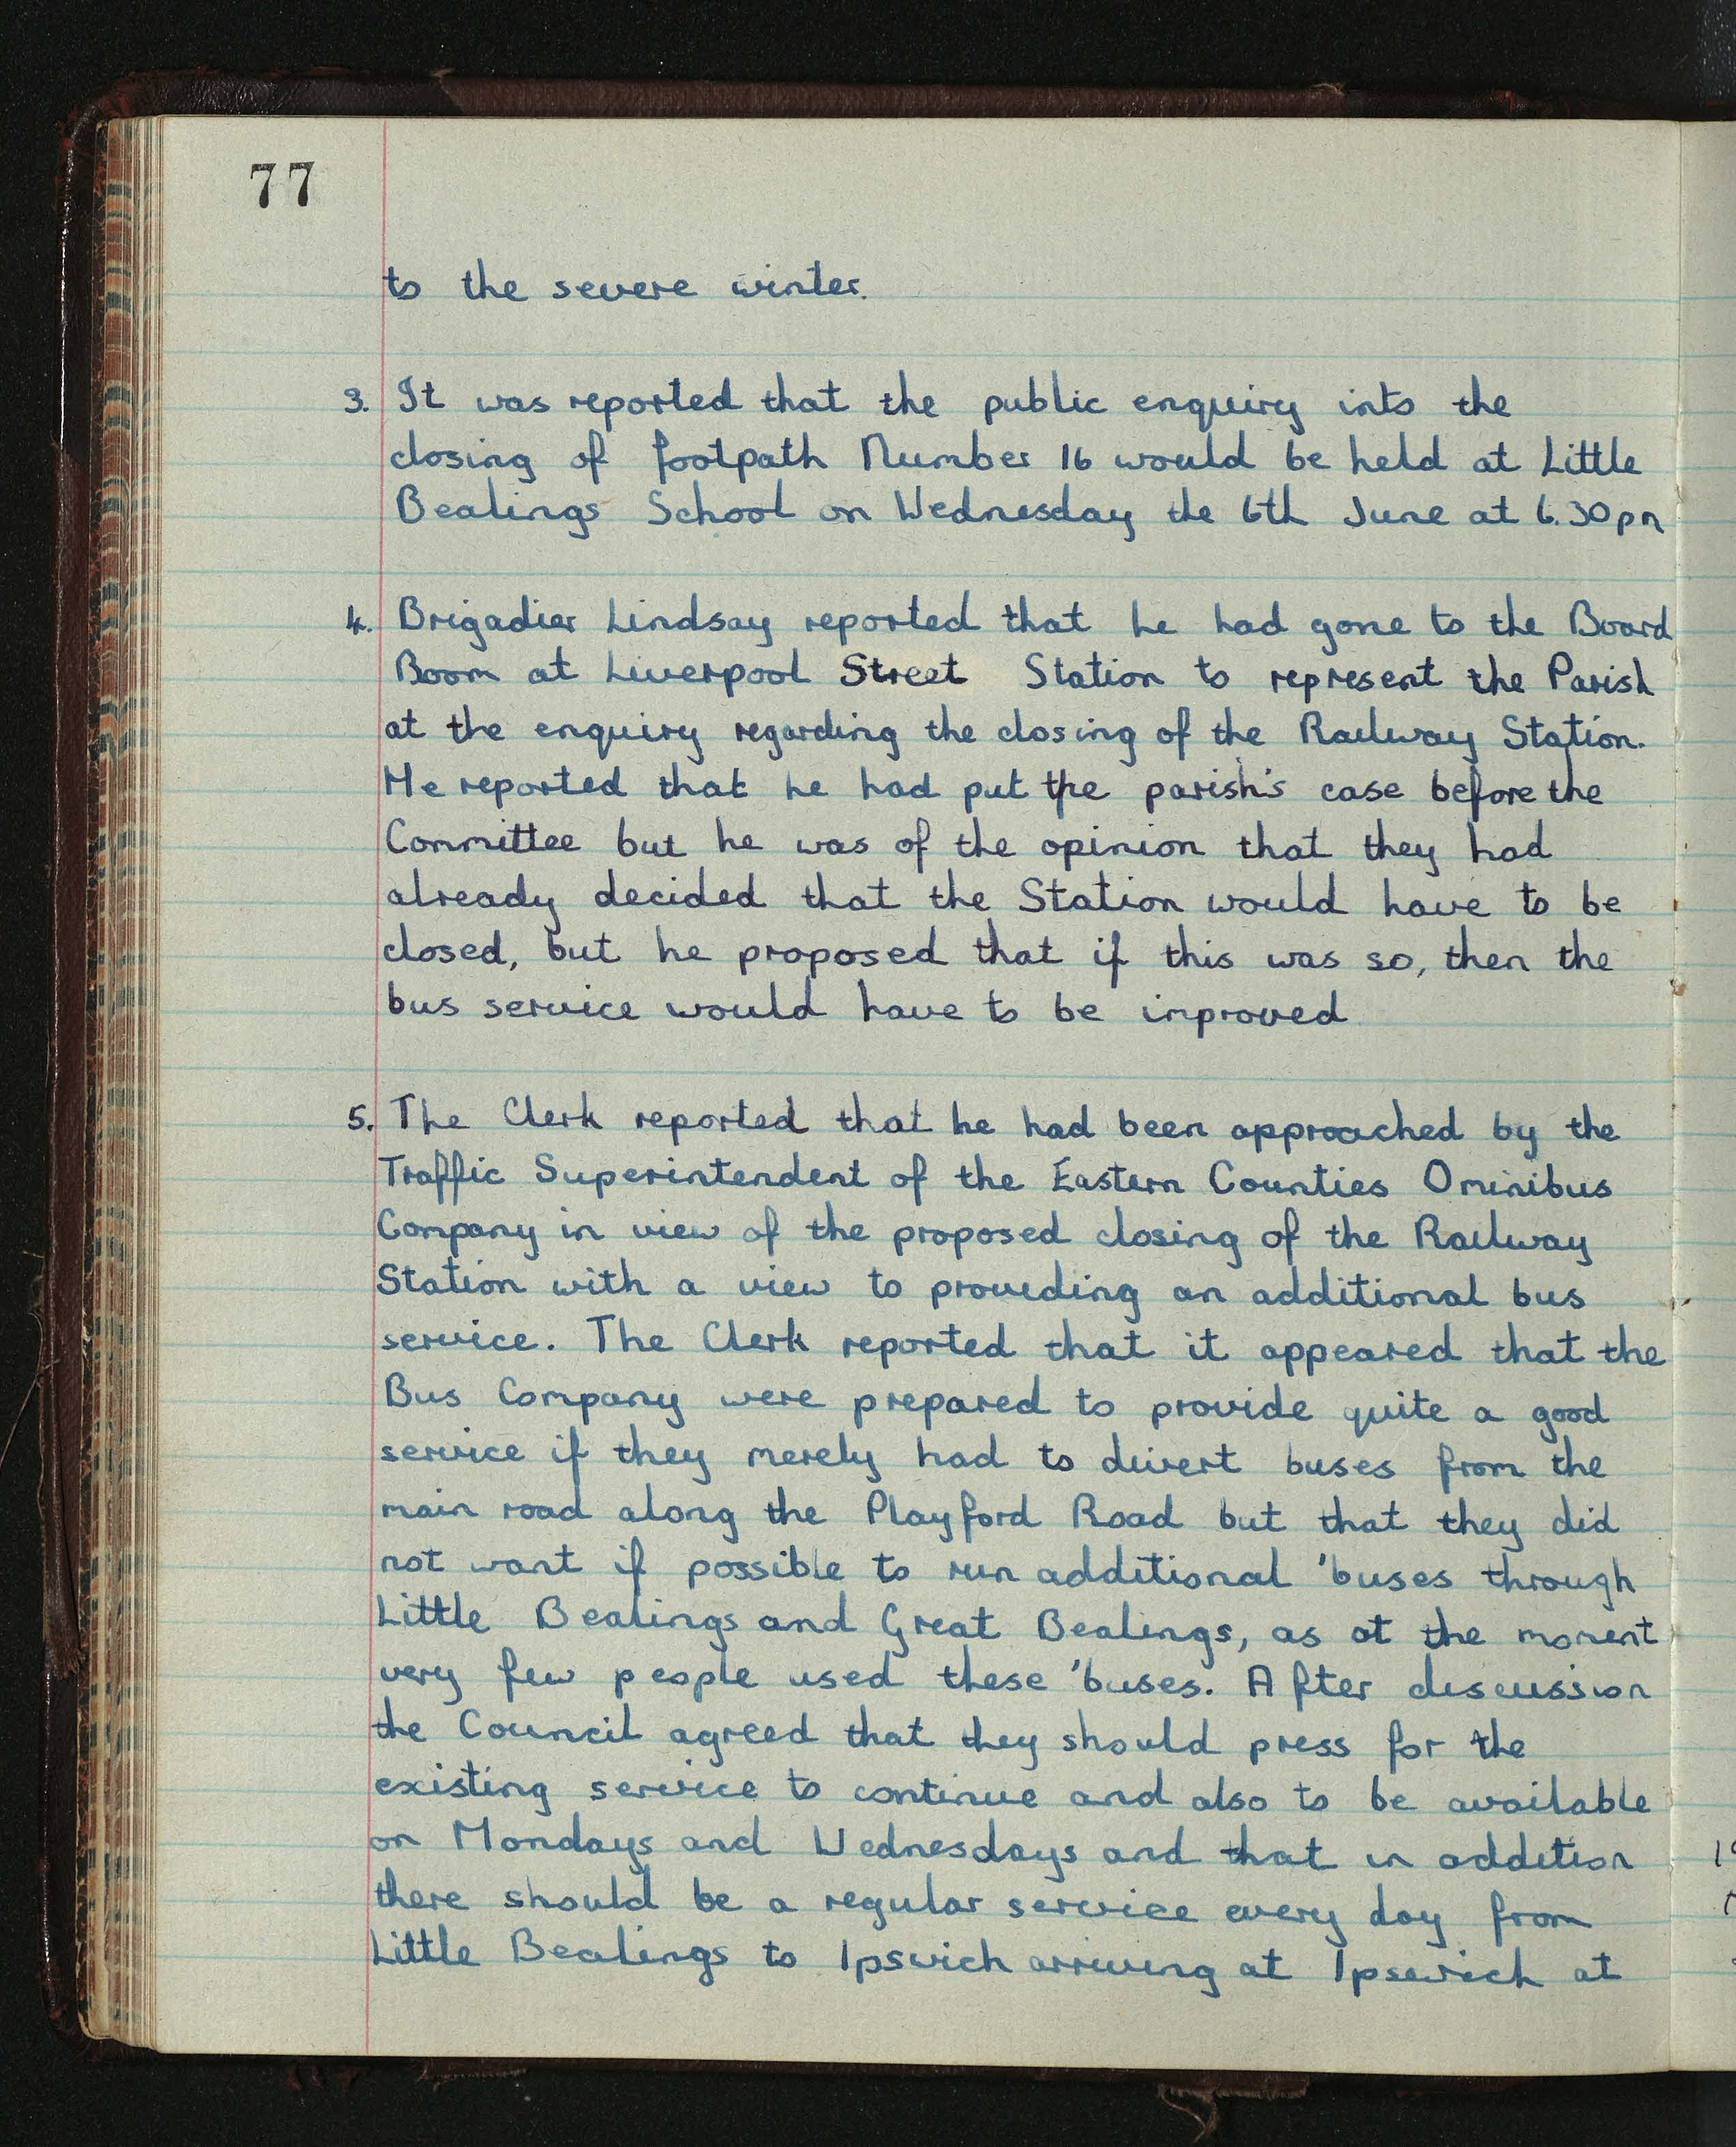 77
to the severe winter.
3. It was reported that the public enquiry into the
closing of footpath Number 16 would be held at Little
Bealings School on Wednesday the 6th June at 6.30pm
4. Brigadier Lindsay reported that he had gone to the Board
Boom at Liverpool Street Station to represent the Parish
at the enquiry regarding the closing of the Railway Station.
He reported that he had put the parish's case before the
Committee but he was of the opinion that they had
already decided that the Station would have to be
closed, but he proposed that if this was so, then the
bus service would have to be improved
5. The Clerk reported that he had been approached by the
Traffic Superintendent of the Eastern Counties Ominibus
Company in view of the proposed closing of the Railway
Station with a view to providing an additional bus
service. The Clerk reported that it appeared that the
Bus Company were prepared to provide quite a good
service if they merely had to divert buses from the
main road along the Playford Road but that they did
not want if possible to run additional 'buses through
Little Bealings and Great Bealings, as at the moment
very few people used these 'buses. After discussion
the Council agreed that they should press for the
existing service to continue and also to be available
on Mondays and Wednesdays and that in addition
there should be a regular service every day from
Little Bealings to Ipswich arriving at Ipswich at